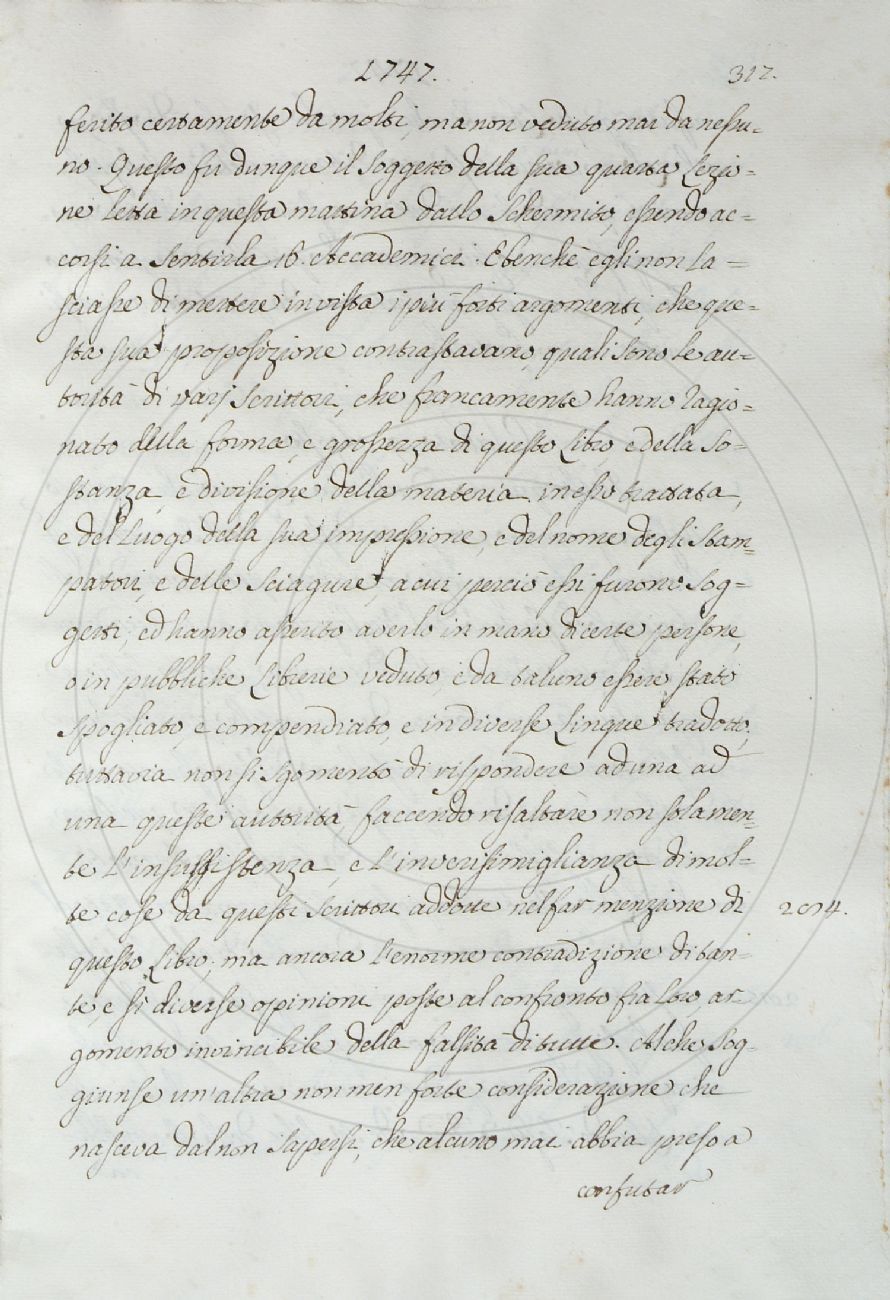 1747.
317.
ferito certamente da molti, ma non veduto mai da nessu=
no. Questo fu dunque il Soggetto della sua quarta Lezio=
ne letta in questa mattina dallo Schermito, essendo ac=
corsi a sentirla 16. Accademici. E benchè egli non la=
sciasse di mettere in vista i più forti argomenti, che que=
sta sua proposizione contrastavano, quali sono le au=
torità di varj Scrittori, che francamente hanno ragio=
nato della forma, e grossezza di questo Libro, e della So=
stanza, e divisione della materia in esso trattata,
e del Luogo della sua impressione, e del nome degli Stam=
patori, e delle Sciagure, a cui perciò essi furono Sog=
getti, ed hanno asserito averlo in mano di certe persone,
o in pubbliche Librerie veduto, e da taluno essere stato
Spogliato, e compendiato, e in diverse Lingue tradotto;
tuttavia non si sgomentò di rispondere ad una ad
una queste autorità, faccendo risaltare non solamen=
te l'insussistenza, e l'inverisimiglianza di mol=
te cose da questi Scrittori addotte nel far menzione di
2014.
questo Libro; ma ancora l'enorme contradizione di tan=
te, e sì diverse opinioni poste al confronto fra loro, ar
gomento invincibile della falsità di tutte. Al che Sog=
giunse un'altra non men forte considerazione che
nasceva dal non Sapersi, che alcuno mai abbia preso a
confutar